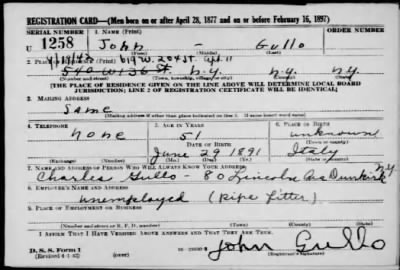 REGISTRATION CARD—(Men born on or after April 28, 1877 and on or before February 16, 1897)
SERIAL NUMBER 1. NAME (Print)
U 1258 John - Gullo
(First) (Middle) (Last)
619 W. 204 ST. apt 11
2. PLACE OF RESIDENCE (Print)
540 W 136 St. N.Y. N.Y. N.Y.
(Number and street) (Town, township, village, or city) (County) (State)
[THE PLACE OF RESIDENCE GIVEN ON THE LINE ABOVE WILL DETERMINE LOCAL BOARD
JURISDICTION; LINE 2 OF REGISTRATION CERTIFICATE WILL BE IDENTICAL]
3. MAILING ADDRESS
Same
(Mailing address if other than place indicated on line 2. If same insert word same)
4. TELEPHONE 5. AGE IN YEARS 6. PLACE OF BIRTH
none 51 unknown
DATE OF BIRTH (Town or county)
June 29 1891 Italy
(Exchange) (Number) (Mo.) (Day) (Yr.) (State or country)
7. NAME AND ADDRESS OF PERSON WHO WILL ALWAYS KNOW YOUR ADDRESS
Charles Gullo - 80 Lincoln Ave Dunkirk NY
8. EMPLOYER'S NAME AND ADDRESS
unemployed (Pipe fitter)
9. PLACE OF EMPLOYMENT OR BUSINESS
(Number and street or R. F. D. number) (Town) (County) (State)
I AFFIRM THAT I HAVE VERIFIED ABOVE ANSWERS AND THAT THEY ARE TRUE.
D. S. S. Form 1
(Revised 4-1-42) (over) John Gullo
(Registrant's signature)